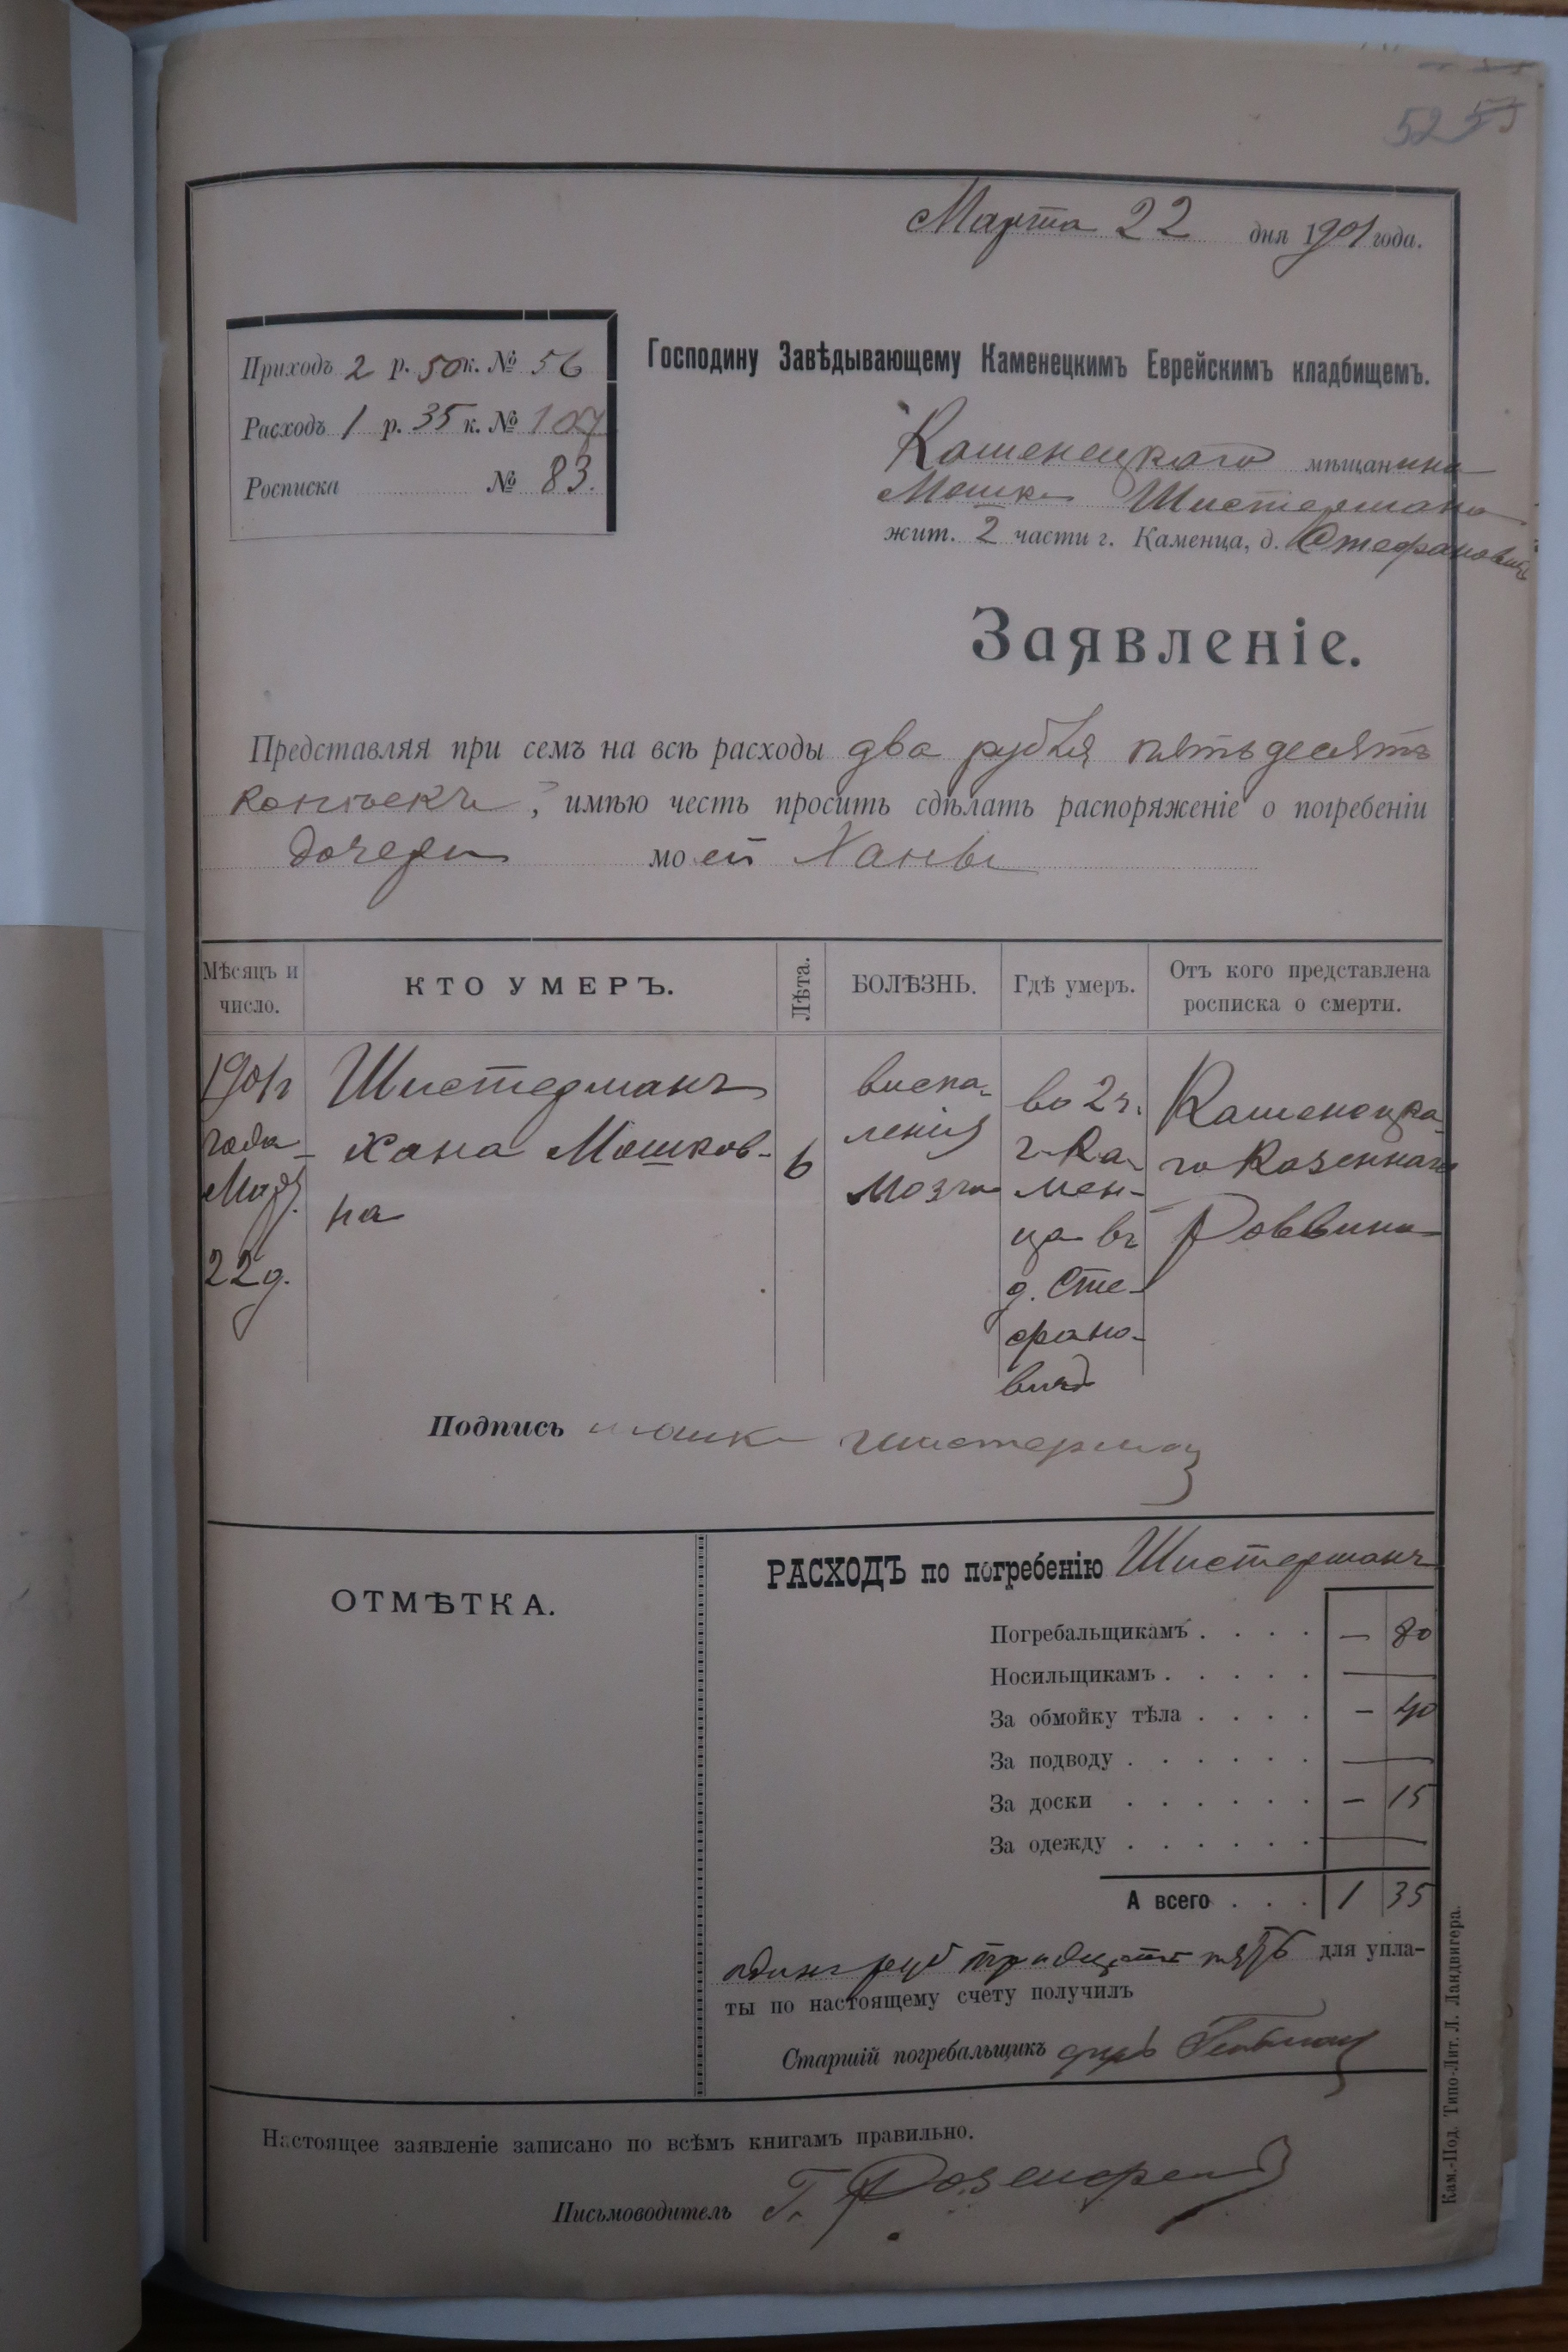 52 53
Марта 22 дня 1901 года.
Приходъ 2 р. 50 к. № 56
Расходъ 1 р. 35 к. № 107
Росписка № 83.
Господину Завѣдывающему Каменецкимъ Еврейскимъ кладбищемъ.
Каменецкаго мѣщанина
Мошка Шистермана
жит. 2 части г. Каменца, д. Стефановича
Заявленіе.
Представляя при семъ на всѣ расходы два рубля пятьдесятъ
копѣекъ, имѣю честь просить сдѣлать распоряженіе о погребеніи
дочери моей Ханы
Мѣсяцъ и число.
КТО УМЕРЪ.
Лѣта.
БОЛѢЗНЬ.
Гдѣ умеръ.
Отъ кого представлена росписка о смерти.
1901
года
Мар.
22 д.
Шистерманъ
Хана Мошков-
на
6
воспа-
ленія
мозга
во 2 ч.
г. Ка-
мен-
ца въ
д. Сте-
фано-
вича
Каменецка-
го Казеннаго
Раввина
Подпись Мошка Шистерман
ОТМѢТКА.
РАСХОДЪ по погребенію Шистерманъ
Погребальщикамъ . . . . — 80
Носильщикамъ . . . . . —
За обмойку тѣла . . . . — 40
За подводу . . . . . . —
За доски . . . . . . — 15
За одежду . . . . . . —
А всего . . . 1 35
одинъ руб тридцать пять для упла-
ты по настоящему счету получилъ
Старшій погребальщикъ
Настоящее заявленіе записано по всѣмъ книгамъ правильно.
Письмоводитель Г. Розенфельд
Кам.-Под. Типо-Лит. Л. Ландвигера.